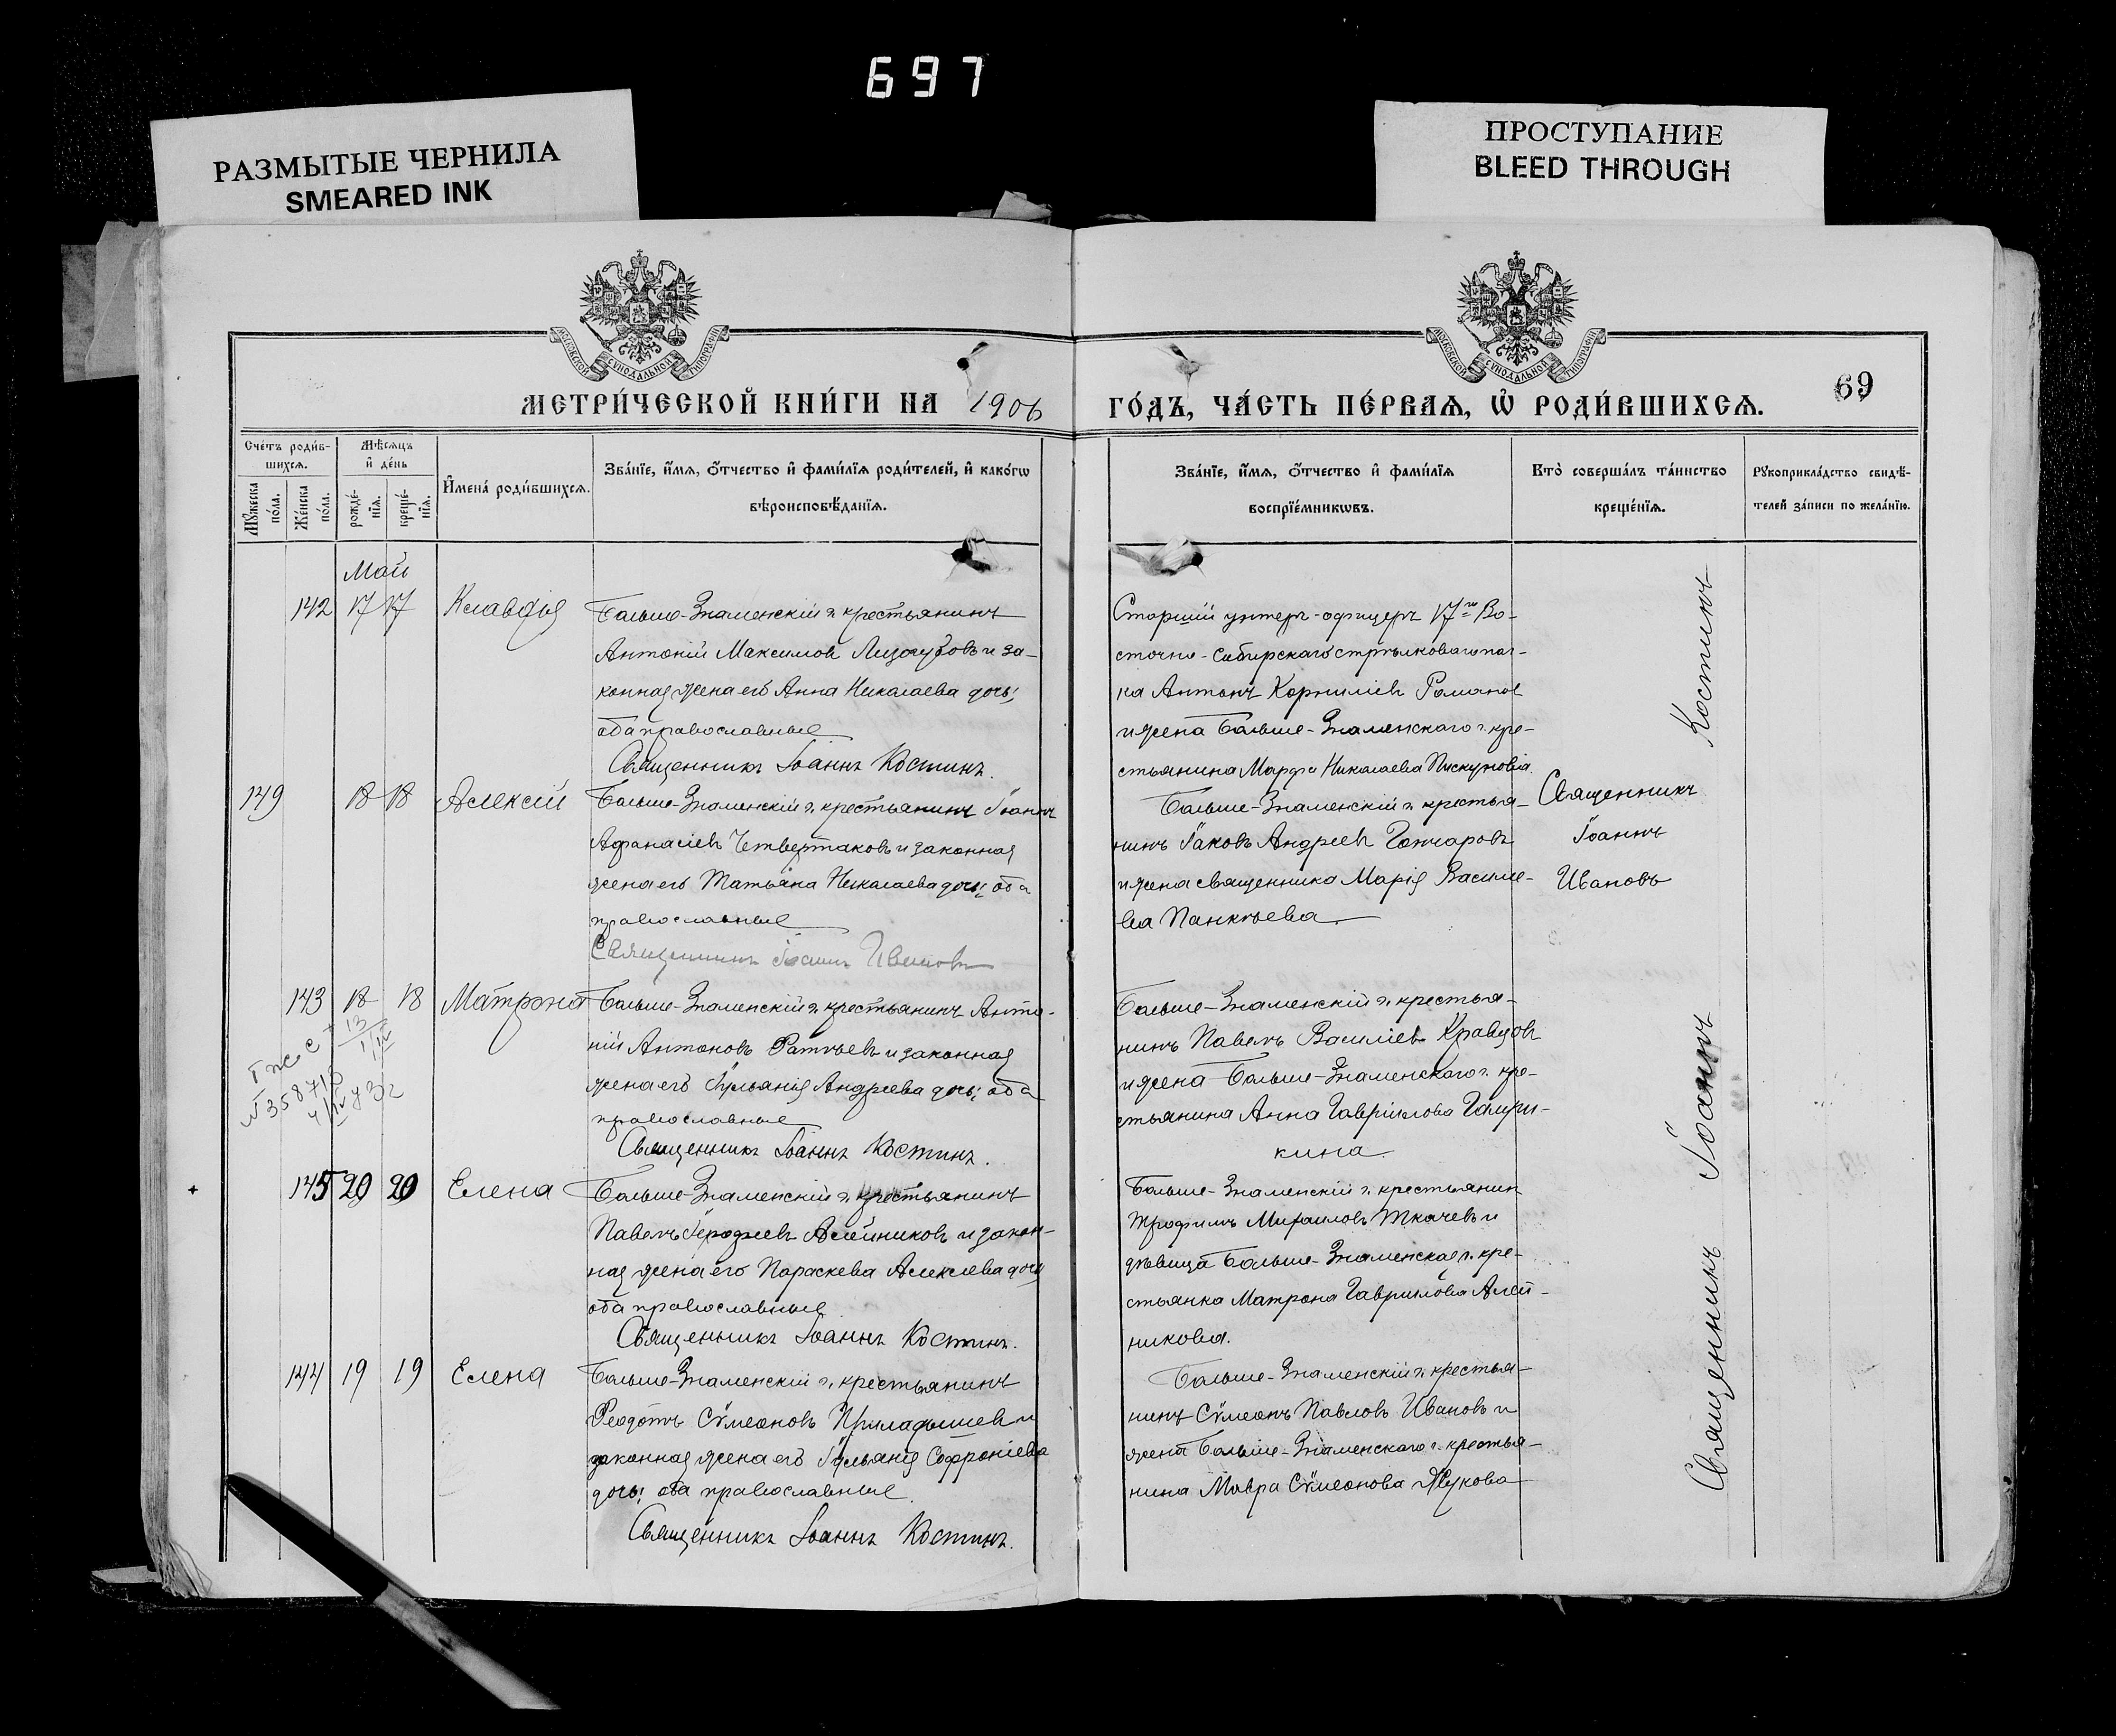 697
РАЗМЫТЫЕ ЧЕРНИЛА
SMEARED INK
ПРОСТУПАНИЕ
BLEED THROUGH
МОСКОВСКОЙ СѴНОДАЛЬНОЙ ТИПОГРАФІИ
МОСКОВСКОЙ СѴНОДАЛЬНОЙ ТИПОГРАФІИ
69
МЕТРИ́ЧЕСКОЙ КНИ́ГИ НА 1906 ГО́ДЪ, ЧА́СТЬ ПЕ́РВАѦ, Ѡ҆ РОДИ́ВШИХСѦ.
Сче́тъ роди́в-
шихсѧ.
Мꙋ́жеска
по́ла.
Же́нска
по́ла.
Мѣ́сѧцъ
и҆ де́нь
рожде́-
нїѧ.
креще́-
нїѧ.
И҆мена̀ роди́вшихсѧ.
Зва́нїе, и҆́мѧ, ѻ҆́тчество и҆ фами́лїѧ роди́телей, и҆ како́гѡ
вѣроисповѣ́данїѧ.
Зва́нїе, и҆́мѧ, ѻ҆́тчество и҆ фами́лїѧ
воспрїе́мникѡвъ.
Кто̀ соверша́лъ та́инство
креще́нїѧ.
Рꙋкоприкла́дство свидѣ́-
телей за́писи по жела́нїю.
Май
142 17 17 Клавдія
Больше-Знаменскій г. крестьянинъ
Антоній Максимов Лизогубовъ и за-
конная жена его Анна Николаева дочь;
оба православные
Священникъ Іоаннъ Костинъ.
Старшій унтеръ-офицеръ 17го Во-
сточно-Сибирскаго стрѣлковаго пол-
ка Антонъ Корниліевъ Романов
и жена Больше-Знаменскаго г. кре-
стьянина Марфа Николаева Пискунова.
149 18 18 Алексій
Больше-Знаменскій г. крестьянинъ Іоаннъ
Афанасіевъ Четвертаковъ и законная
жена его Татьяна Николаева дочь; оба
православные
Священникъ Іоаннъ Ивановъ
Больше-Знаменскій г. крестья-
нинъ Іаковъ Андреевъ Гончаровъ
и жена священника Марія Василіе-
ва Панкѣева
Священникъ
Іоаннъ
Ивановъ
143 18 18 Матрона
№358713
Больше-Знаменскій г. крестьянинъ Анто-
ній Антоновъ Ратѣевъ и законная
жена его Іуліанія Андреева дочь; оба
православные
Священникъ Іоаннъ Костинъ.
Больше-Знаменскій г. крестья-
нинъ Павелъ Василіевъ Кравцовъ
и жена Больше-Знаменскаго г. кре-
стьянина Анна Гавріилова
кина
145 20 20 Елена
Больше-Знаменскій г. крестьянинъ
Павелъ Алейниковъ и закон-
ная жена его Параскева Алексіева дочь
оба православные
Священникъ Іоаннъ Костинъ.
Больше-Знаменскій г. крестьянин
Трофимъ Михаиловъ Ткачевъ и
дѣвица Больше-Знаменская г. кре-
стьянка Матрона Гавриилова Алей-
никова.
144 19 19 Елена
Больше-Знаменскій г. крестьянинъ
Ѳеодотъ Сѵмеоновъ и
законная жена его Іуліанія Софроніева
дочь; оба православные.
Священникъ Іоаннъ Костинъ.
Больше-Знаменскій г. крестья-
нинъ Сѵмеонъ Павловъ Ивановъ и
жена Больше-Знаменскаго г. крестья-
нина Мавра Сѵмеонова Жукова
Священникъ Іоаннъ Костинъ